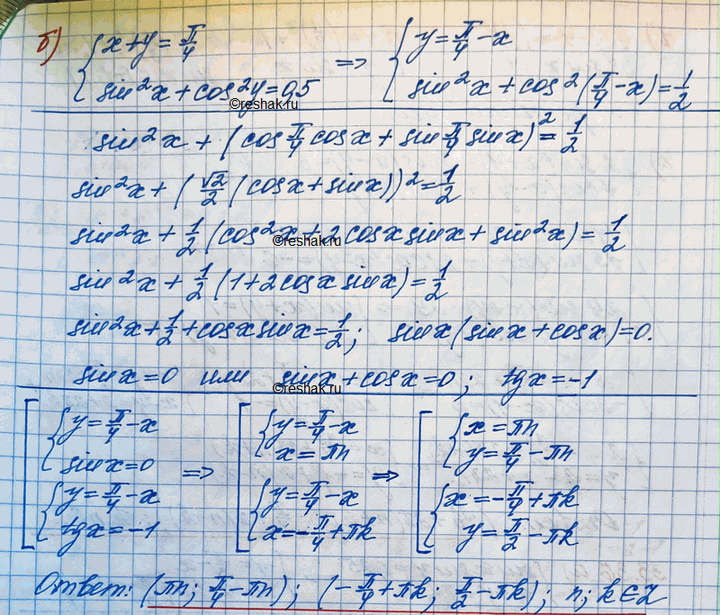 б) { x+y=π/4 => { y=π/4-x
sin²x+cos²y=0,5 sin²x+cos²(π/4-x)=1/2
©reshak.ru
sin²x+(cos π/4 cosx+sin π/4 sinx)²=1/2
sin²x+(√2/2(cosx+sinx))²=1/2
sin²x+1/2(cos²x+2cosxsinx+sin²x)=1/2
©reshak.ru
sin²x+1/2(1+2cosxsinx)=1/2
sin²x+1/2+cosxsinx=1/2; sinx(sinx+cosx)=0.
sinx=0 или sinx+cosx=0; tgx=-1
©reshak.ru
[ { y=π/4-x [ { y=π/4-x [ { x=πn
sinx=0 => x=πn => y=π/4-πn
{ y=π/4-x { y=π/4-x { x=-π/4+πk
tgx=-1 x=-π/4+πk y=π/2-πk
Ответ: (πn; π/4-πn); (-π/4+πk; π/2-πk); n; k∈Z